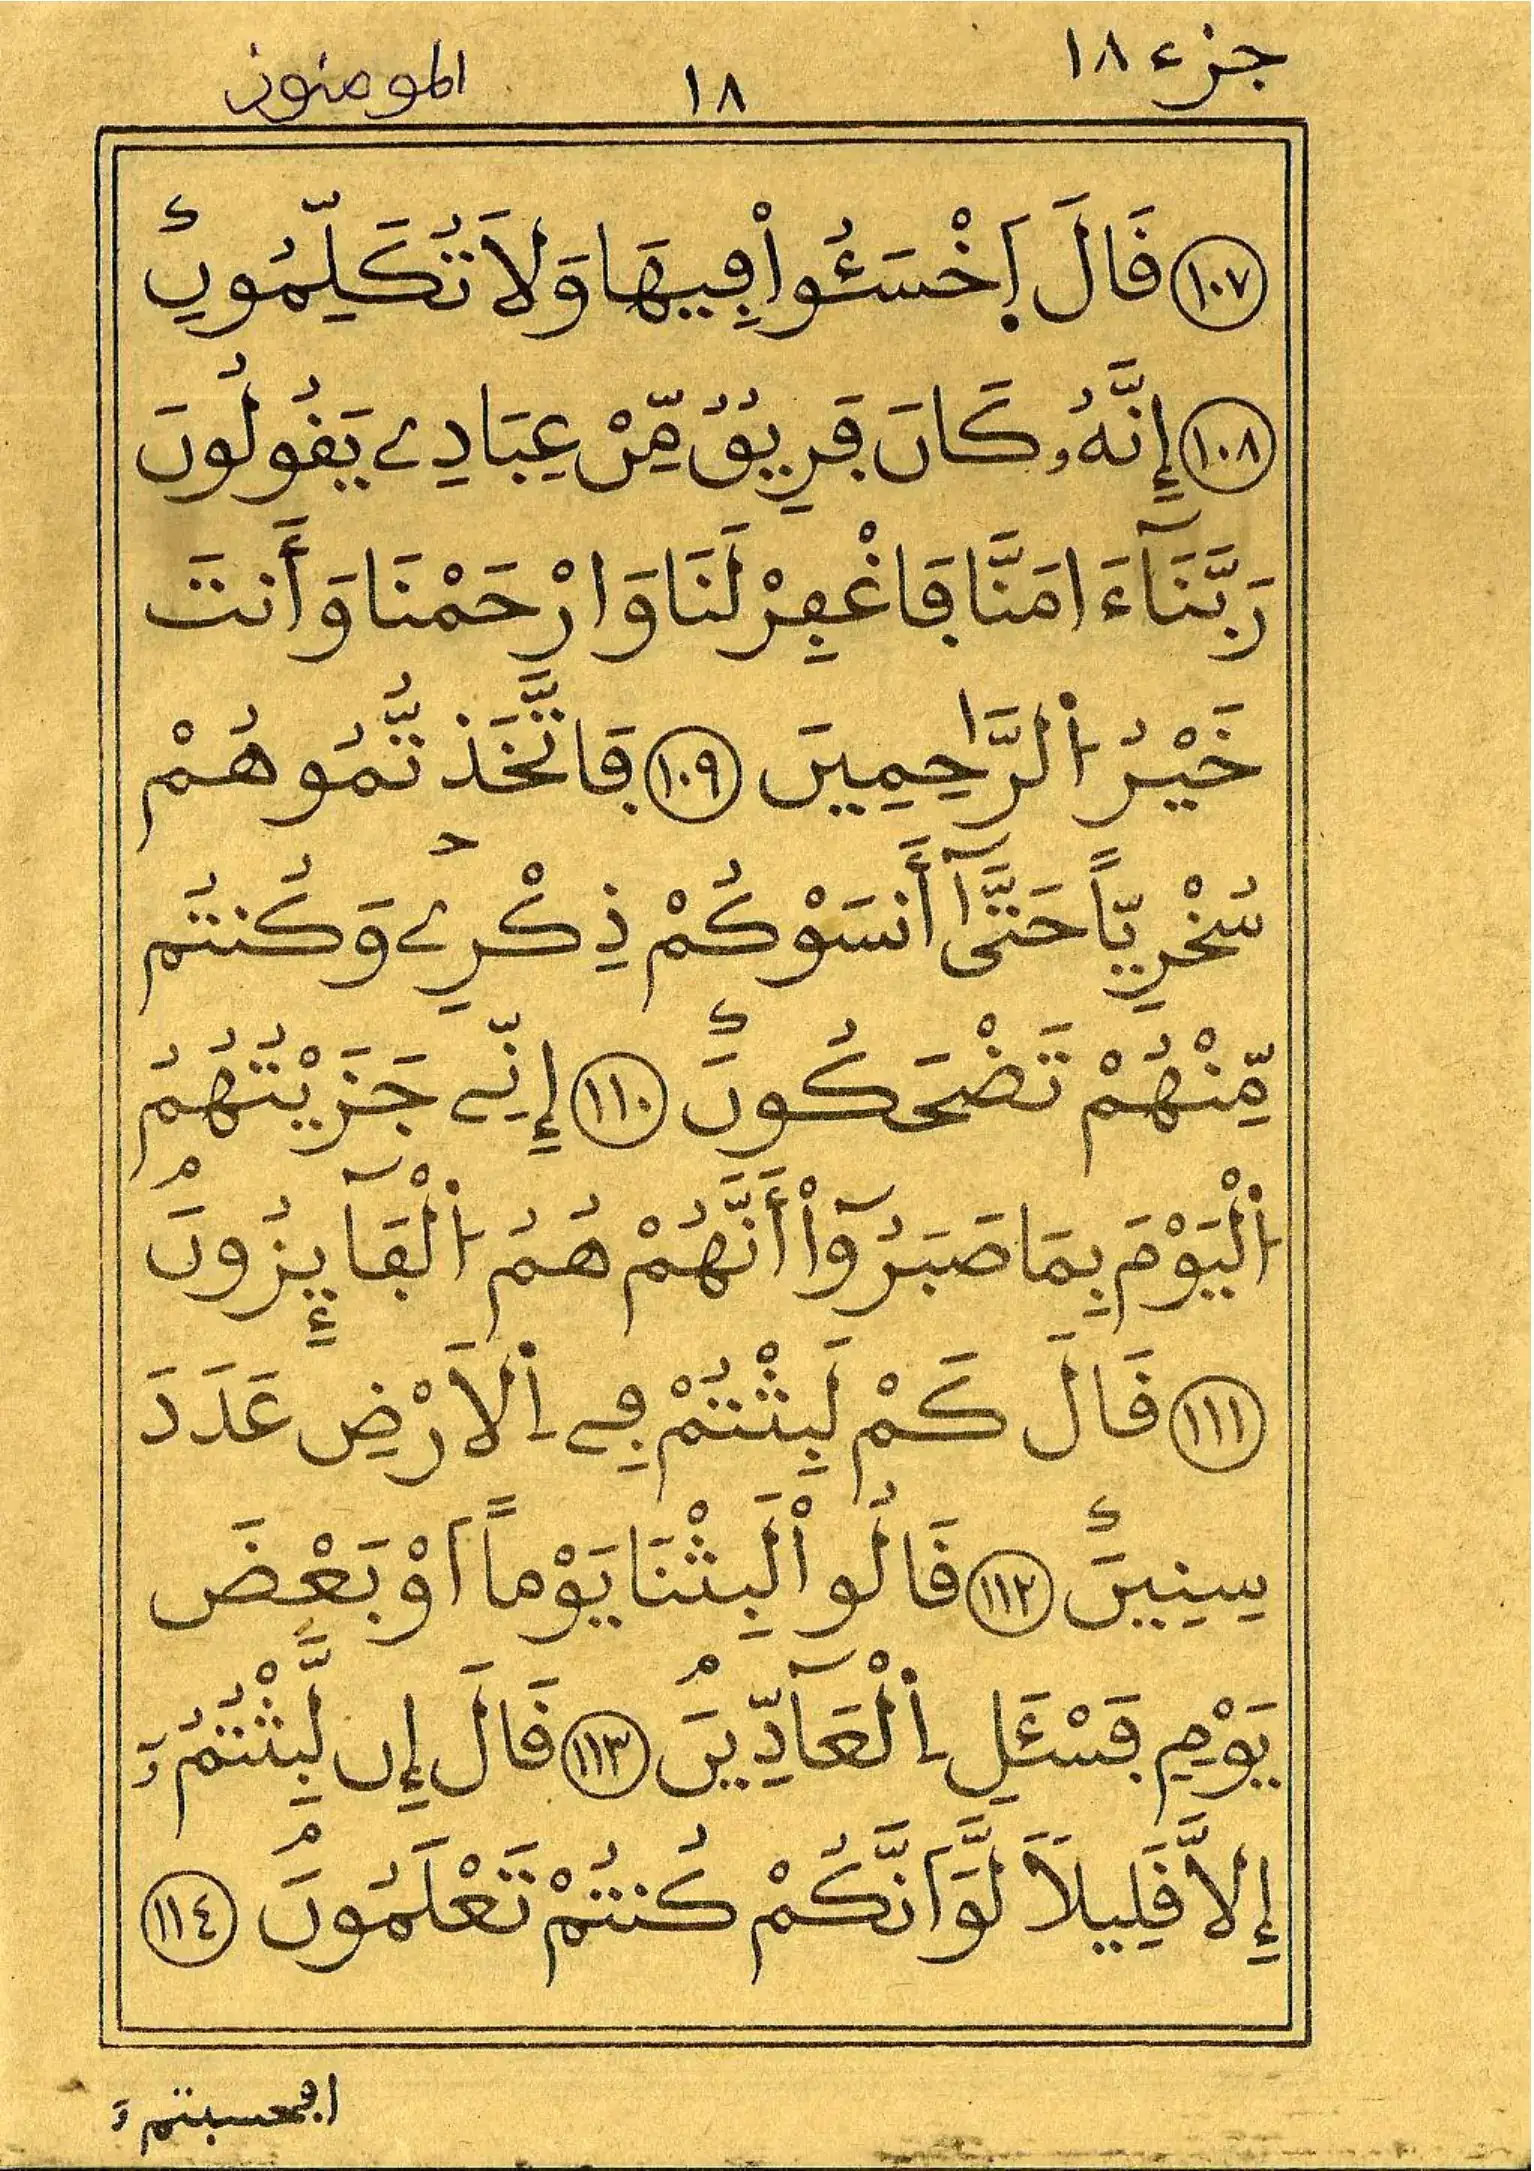 جزء ١٨
١٨
المومنون
١٠٧ فَالَ اَ۪خْسَـُٔواْ ڢِيهَا وَلَا تُكَلِّمُونِۦٓ
١٠٨ إِنَّهُۥ كَانَ ڢَرِيقٌ مِّنْ عِبَادِے يَفُولُونَ
رَبَّنَآ ءَامَنَّا ڢَاغْڢِرْ لَنَا وَارْحَمْنَا وَأَنتَ
خَيْرُ اُ۬لرَّٰحِمِينَ ١٠٩ ڢَاتَّخَذتُّمُوهُمْ
سُخْرِيّاً حَتَّىٰٓ أَنسَوْكُمْ ذِكْرِے وَكُنتُم
مِّنْهُمْ تَضْحَكُونَ ١١٠ إِنِّے جَزَيْتُهُمُ
اُ۬لْيَوْمَ بِمَا صَبَرُوٓاْ أَنَّهُمْ هُمُ اُ۬لْڢَآئِزُونَ
١١١ فَالَ كَمْ لَبِثْتُمْ ڢِے اِ۬لَارْضِ عَدَدَ
سِنِينَ ١١٢ فَالُواْ لَبِثْنَا يَوْماً اَوْ بَعْضَ
يَوْمٍ ڢَسْـَٔلِ اِ۬لْعَآدِّينَ ١١٣ فَالَ إِن لَّبِثْتُمُۥٓ
إِلَّا فَلِيلًا لَّوَ اَنَّكُمْ كُنتُمْ تَعْلَمُونَ ١١٤
اڢحسبتمۥٓ